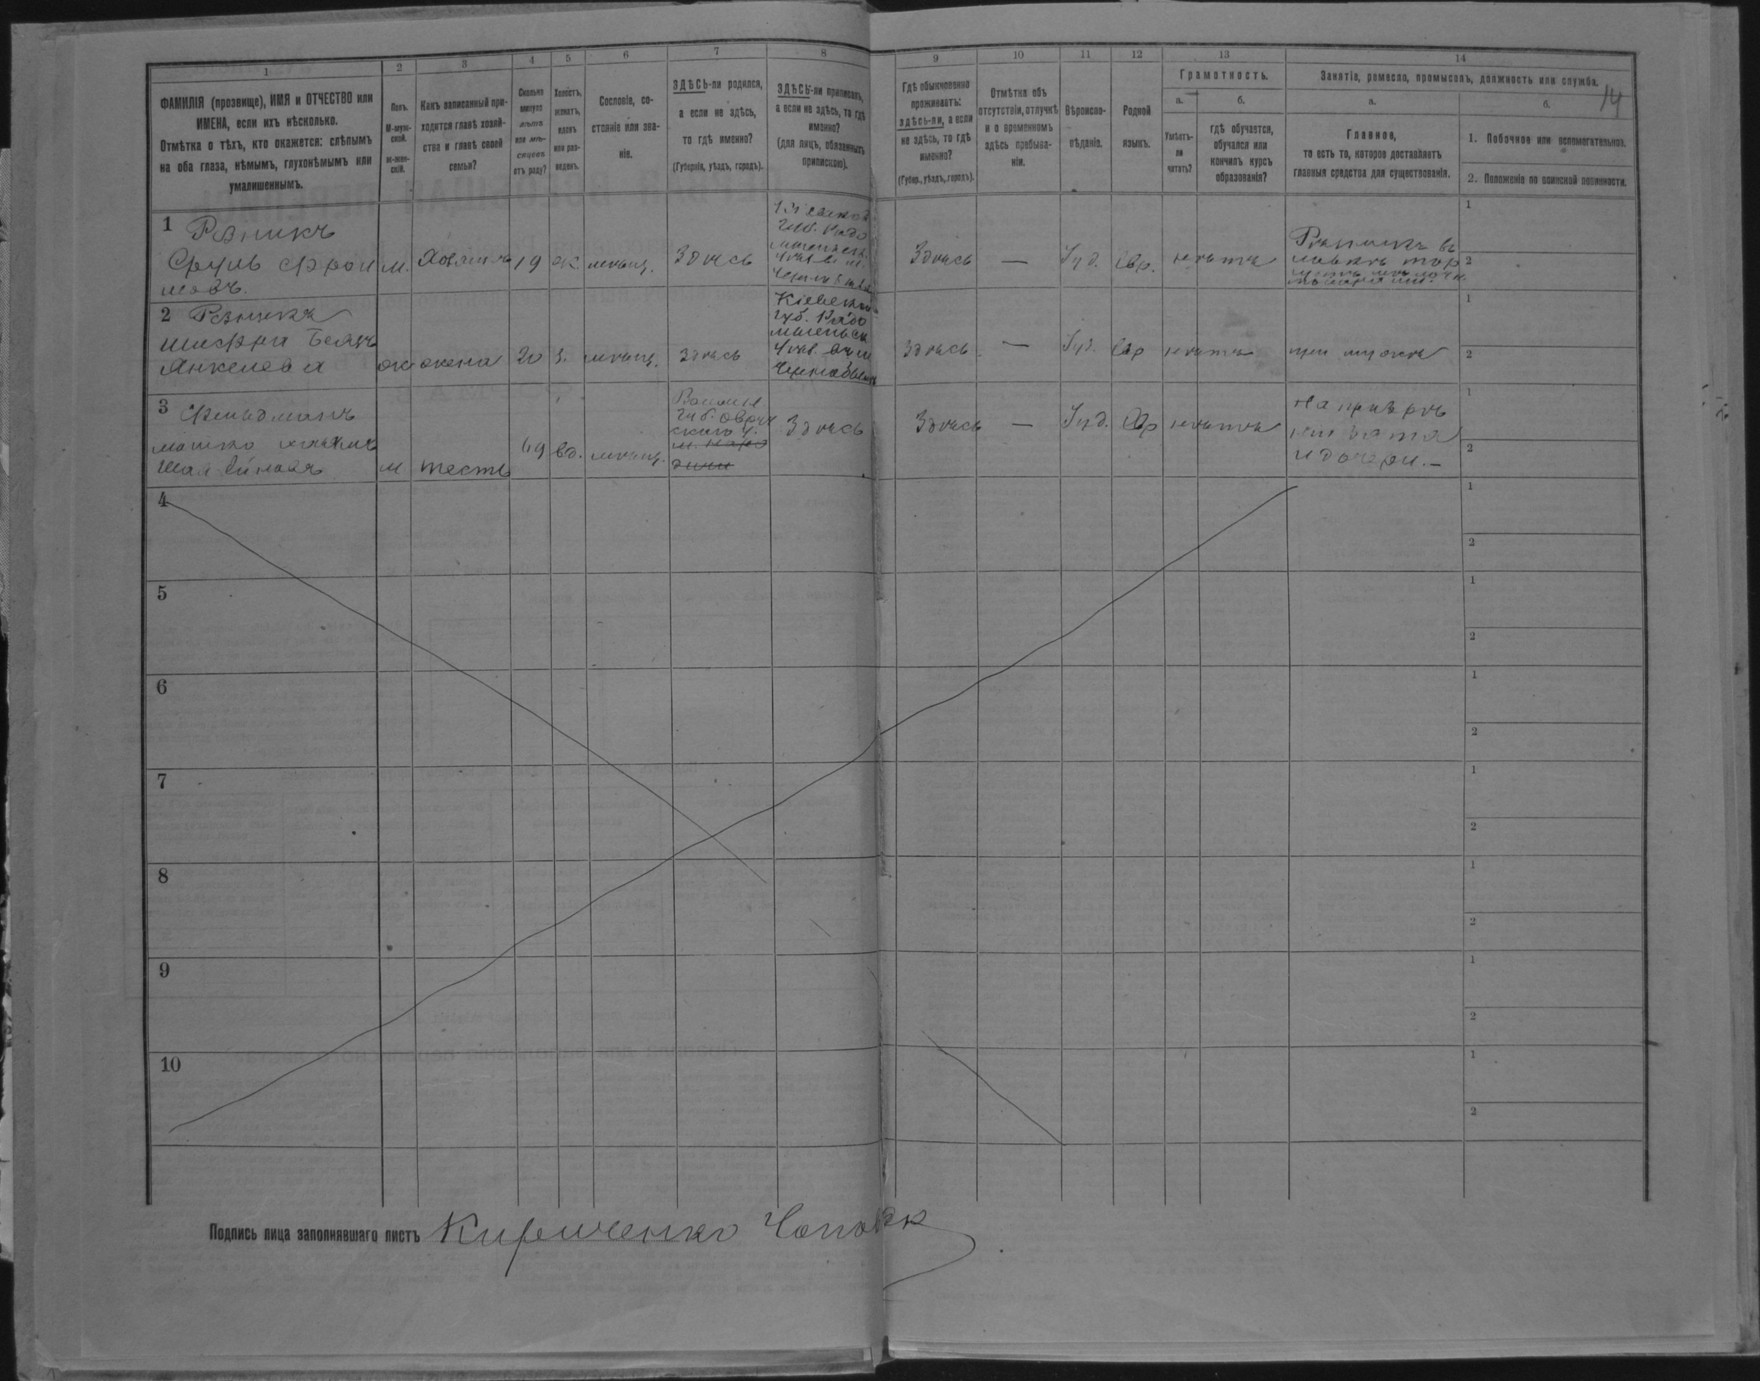 1
2
3
4
5
6
7
8
9
10
11
12
13
14
14
ФАМИЛІЯ (прозвище), ИМЯ и ОТЧЕСТВО или
ИМЕНА, если ихъ нѣсколько.
Отмѣтка о тѣхъ, кто окажется: слѣпымъ
на оба глаза, нѣмымъ, глухонѣмымъ или
умалишеннымъ.
Полъ.
М-муж-
ской.
Ж-жен-
скій.
Какъ записанный при-
ходится главѣ хозяй-
ства и главѣ своей
семьи?
Сколько
минуло
лѣтъ
или мѣ-
сяцевъ
отъ роду?
Холостъ,
женатъ,
вдовъ
или раз-
веденъ.
Сословіе, со-
стояніе или зва-
ніе.
ЗДѢСЬ-ли родился,
а если не здѣсь,
то гдѣ именно?
(Губернія, уѣздъ, городъ).
ЗДѢСЬ-ли приписанъ,
а если не здѣсь, то гдѣ
именно?
(для лицъ, обязанныхъ
припискою).
Гдѣ обыкновенно
проживаетъ:
здѣсь-ли, а если
не здѣсь, то гдѣ
именно?
(Губер., уѣздъ, городъ).
Отмѣтка объ
отсутствіи, отлучкѣ
и о временномъ
здѣсь пребыва-
ніи.
Вѣроиспо-
вѣданіе.
Родной
языкъ.
Грамотность.
а.
Умѣетъ-
ли
читать?
б.
гдѣ обучается,
обучался или
кончилъ курсъ
образованія?
Занятіе, ремесло, промыселъ, должность или служба.
а.
Главное,
то есть то, которое доставляетъ
главныя средства для существованія.
б.
1. Побочное или вспомогательное.
2. Положеніе по воинской повинности.
1 Рѣзникъ
Сруль Фрои
мовъ.
м. Хозяинъ 19 ж. мѣщ. Здѣсь
Здѣсь — Іуд. Евр. нѣтъ
1
2
2 Рѣзникъ
Бейла
Янкелева
ж жена 20 з. мѣщ. Здѣсь
Кіевской
губ. Радо
мысльск
уѣз. въ м
Чернобыль
Здѣсь — Іуд. Евр нѣтъ при мужѣ
1
2
3 Фельдманъ
м тесть 49 вд. мѣщ.
Волын
губ. Овруч
скаго у.
Здѣсь
Здѣсь — Іуд. Евр нѣтъ
и дочери. —
1
2
4
1
2
5
1
2
6
1
2
7
1
2
8
1
2
9
1
2
10
1
2
Подпись лица заполнявшаго листъ Кириченко